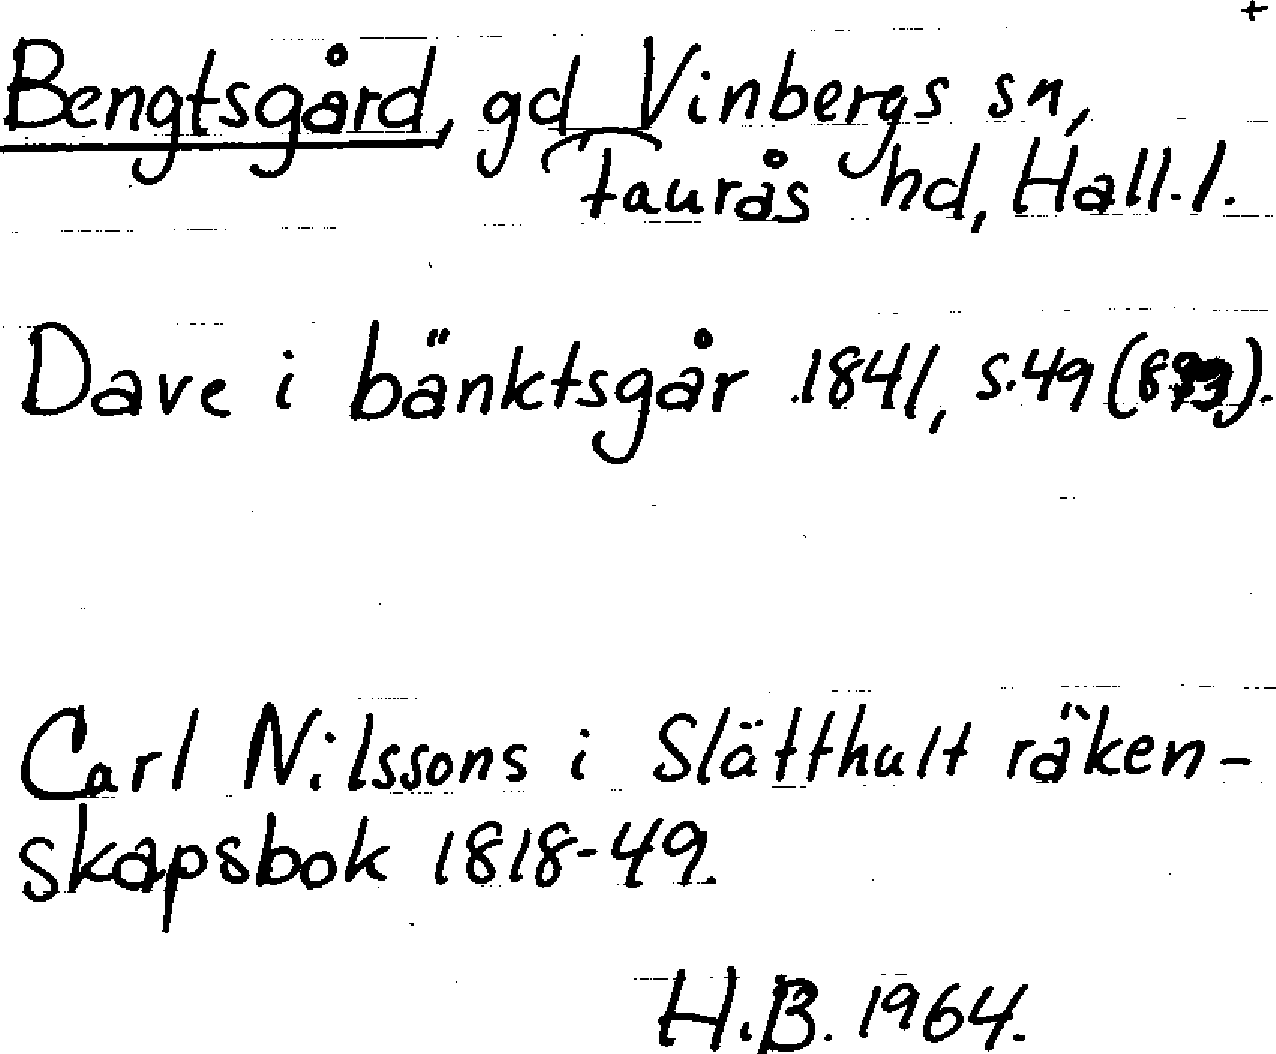 +
Bengtsgård, gd Vinbergs sn,
Faurås hd, Hall.l.
Dave i bänktsgår 1841, s.49
Carl Nilssons i Slätthult räken-
skapsbok 1818-49.
H.B. 1964.